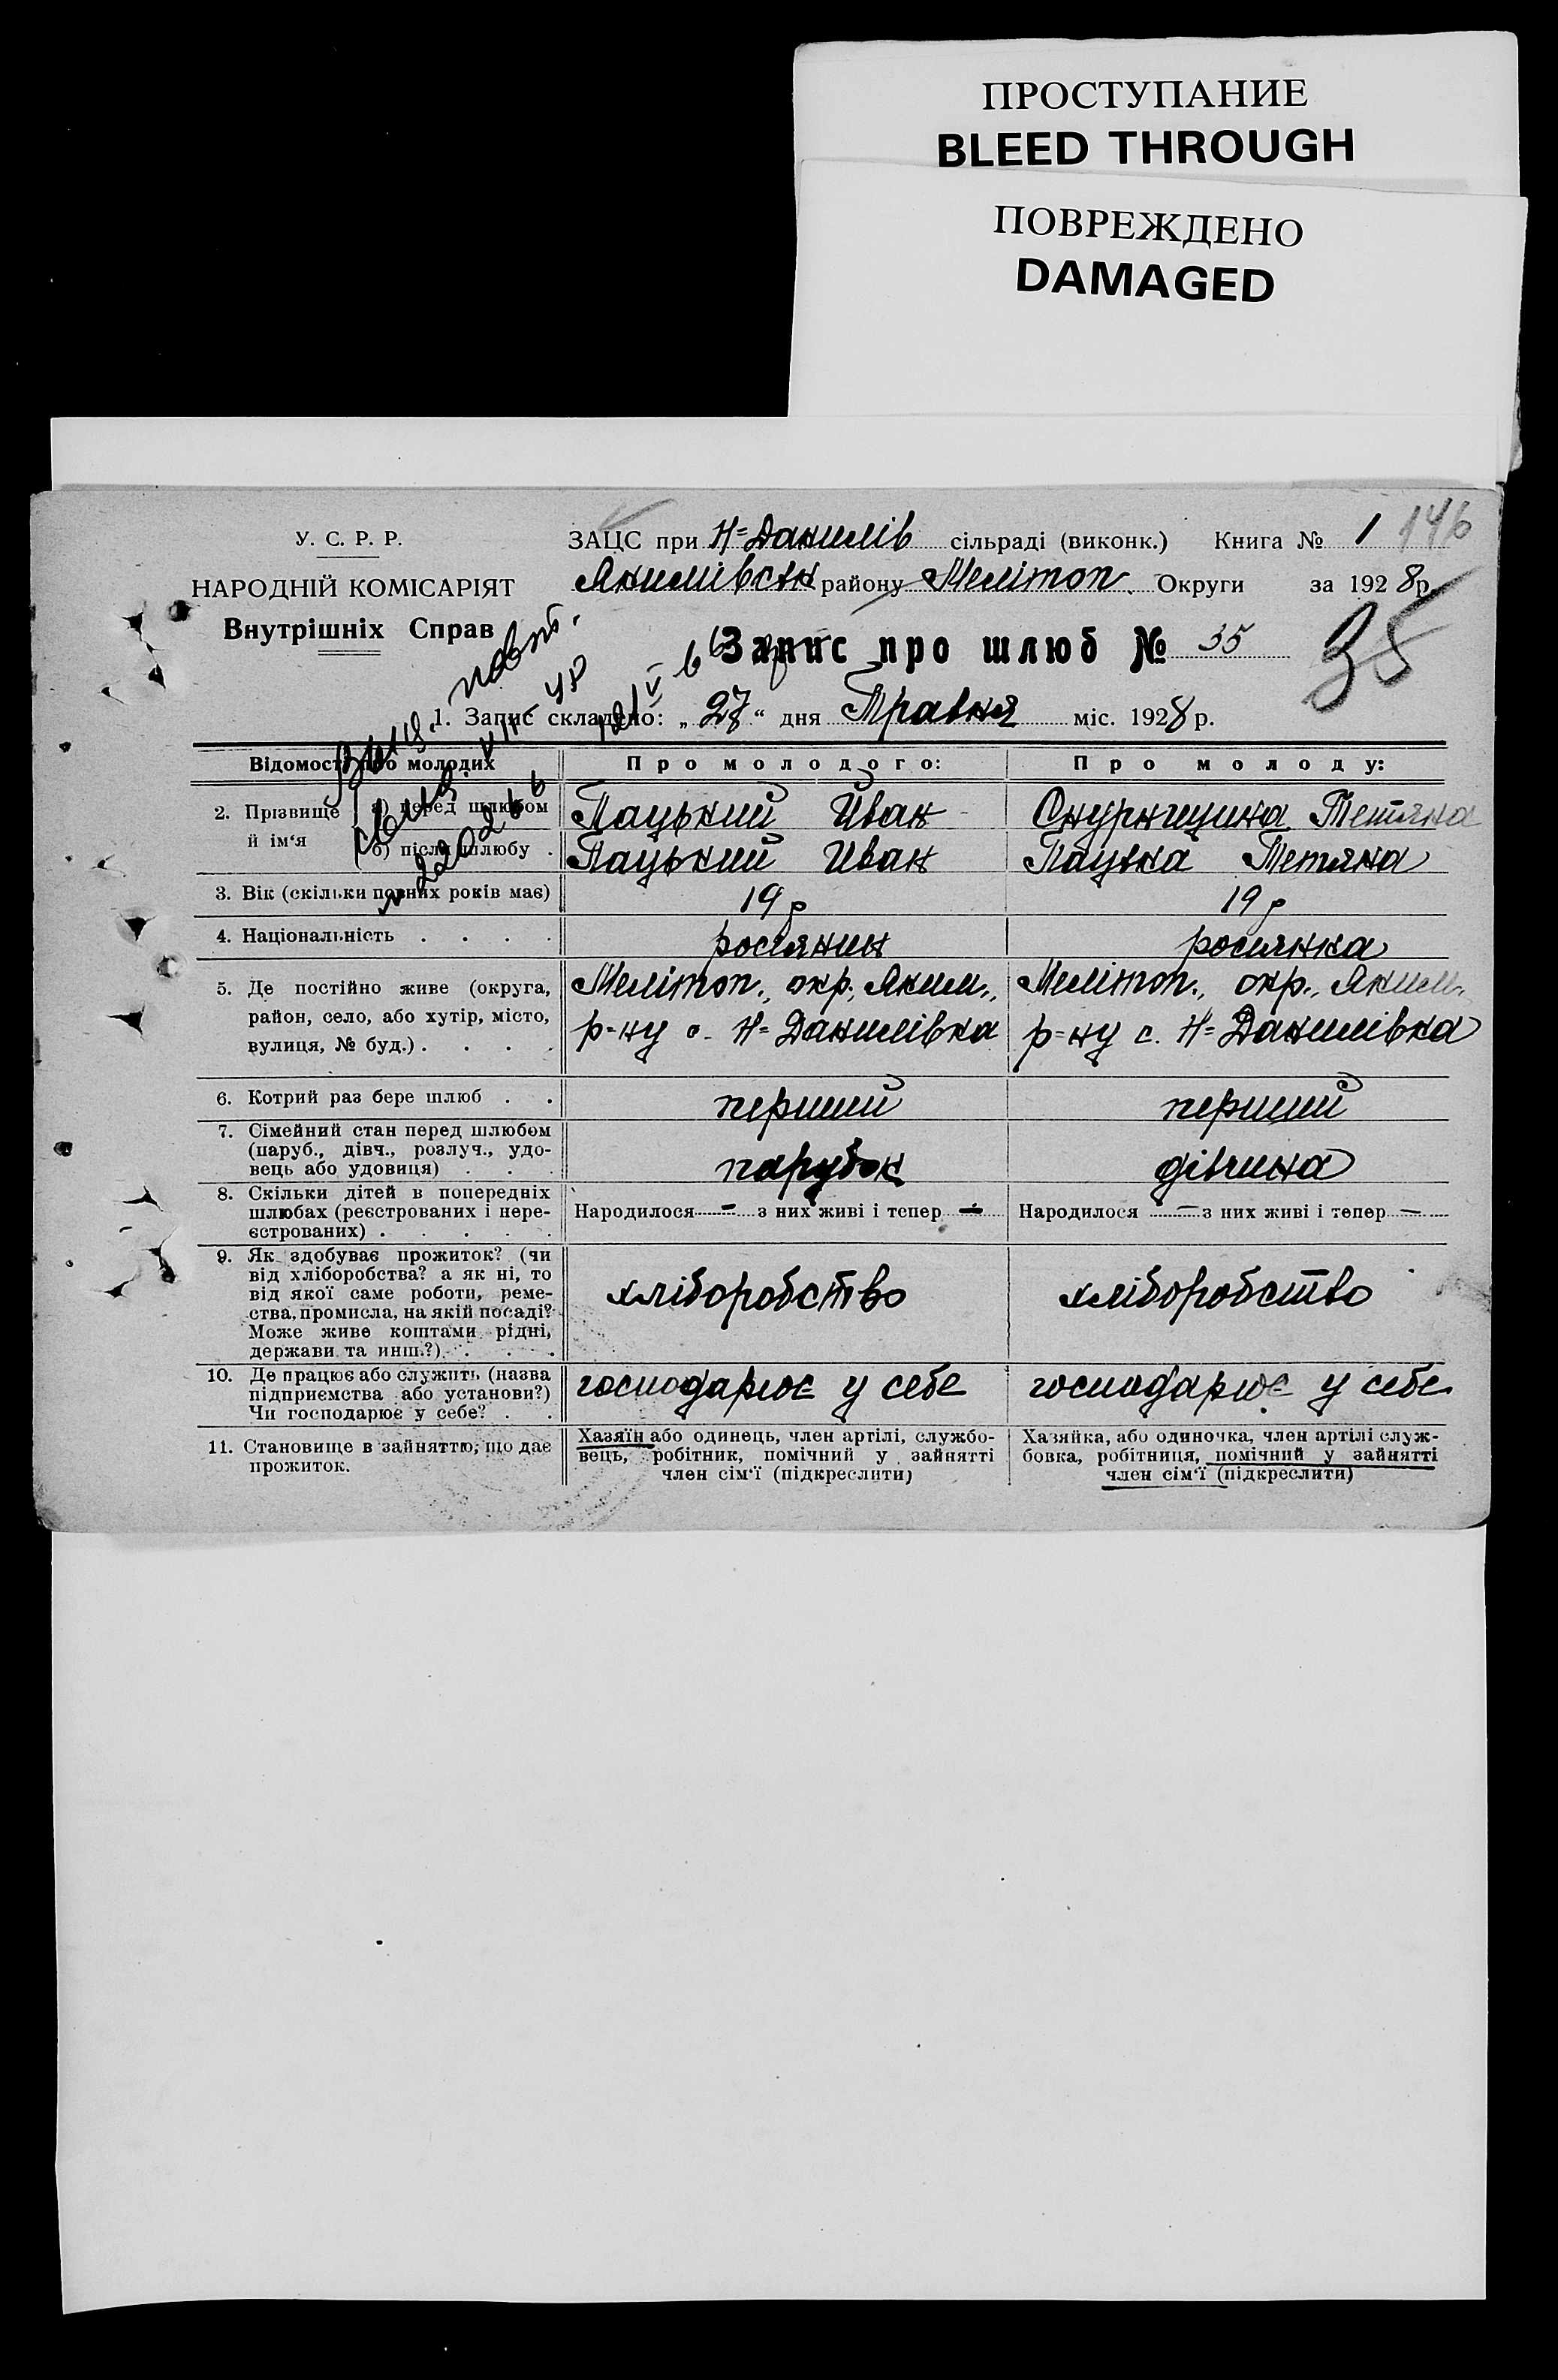 ПРОСТУПАНИЕ
BLEED THROUGH
ПОВРЕЖДЕНО
DAMAGED
У. С. Р. Р.
НАРОДНІЙ КОМІСАРІЯТ
Внутрішніх Справ
ЗАЦС при Н=Данилів сільраді (виконк.) Книга № 1 146
Якимівськ району Мелітоп. Округи за 1928 р.
Запис про шлюб № 35 35
1. Запис складено: „ 27 “ дня Травня міс. 1928 р.
Відомості про молодих Про молодого: Про молоду:
2. Прізвище й ім‘я
а) перед шлюбом Пацький Иван Тетяна
б) після шлюбу . Пацький Иван Пацька Тетяна
3. Вік (скільки повних років має) 19 р 19 р
4. Національність . . . . росіянин росиянка
5. Де постійно живе (округа, район, село, або хутір, місто, вулиця, № буд.) . . . .
Мелітоп., окр., Яким., р=ну с. Н=Данилівка
Мелітоп., окр., Яким. р=ну с. Н=Данилівка
6. Котрий раз бере шлюб . . перший перший
7. Сімейний стан перед шлюбом (паруб., дівч., розлуч., удовець або удовиця) . . . парубок дівчина
8. Скільки дітей в попередніх шлюбах (реєстрованих і нереєстрованих) . . . . .
Народилося — з них живі і тепер —
Народилося — з них живі і тепер —
9. Як здобуває прожиток? (чи від хліборобства? а як ні, то від якої саме роботи, ремества, промисла, на якій посаді? Може живе коштами рідні, держави та инш.?) . . . .
хліборобство хліборобство
10. Де працює або служить (назва підприємства або установи?) Чи господарює у себе? . .
господарює у себе господарює у себе
11. Становище в зайняттю, що дає прожиток.
Хазяїн або одинець, член артілі, службовець, робітник, помічний у зайнятті член сім‘ї (підкреслити)
Хазяйка, або одиночка, член артілі службовка, робітниця, помічний у зайнятті член сім‘ї (підкреслити)